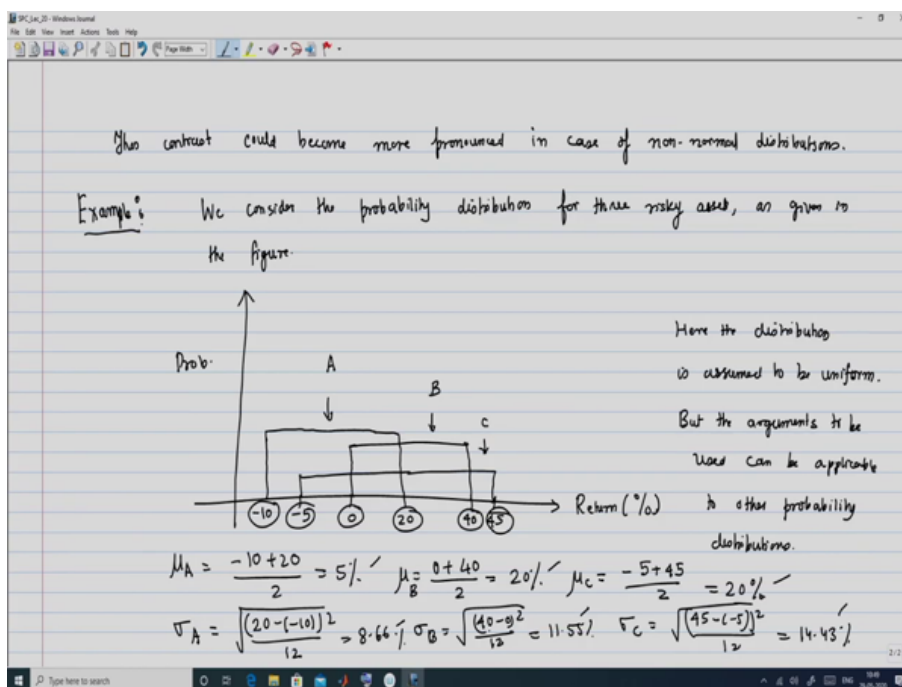 SPC_Lec_20 - Windows Journal
File Edit View Insert Actions Tools Help
Page Width
This contrast could become more pronounced in case of non-normal distributions.
Example: We consider the probability distribution for three risky asset, as given in
the figure.
Prob.
A
B
C
-10 -5 0 20 40 45
Return (%)
Here the distribution
is assumed to be uniform.
But the arguments to be
used can be applicable
to other probability
distributions.
μA = (-10+20)/2 = 5% μB = (0+40)/2 = 20% μC = (-5+45)/2 = 20%
σA = √((20-(-10))²/12) = 8.66% σB = √((40-0)²/12) = 11.55% σC = √((45-(-5))²/12) = 14.43%
2/2
Type here to search
ENG